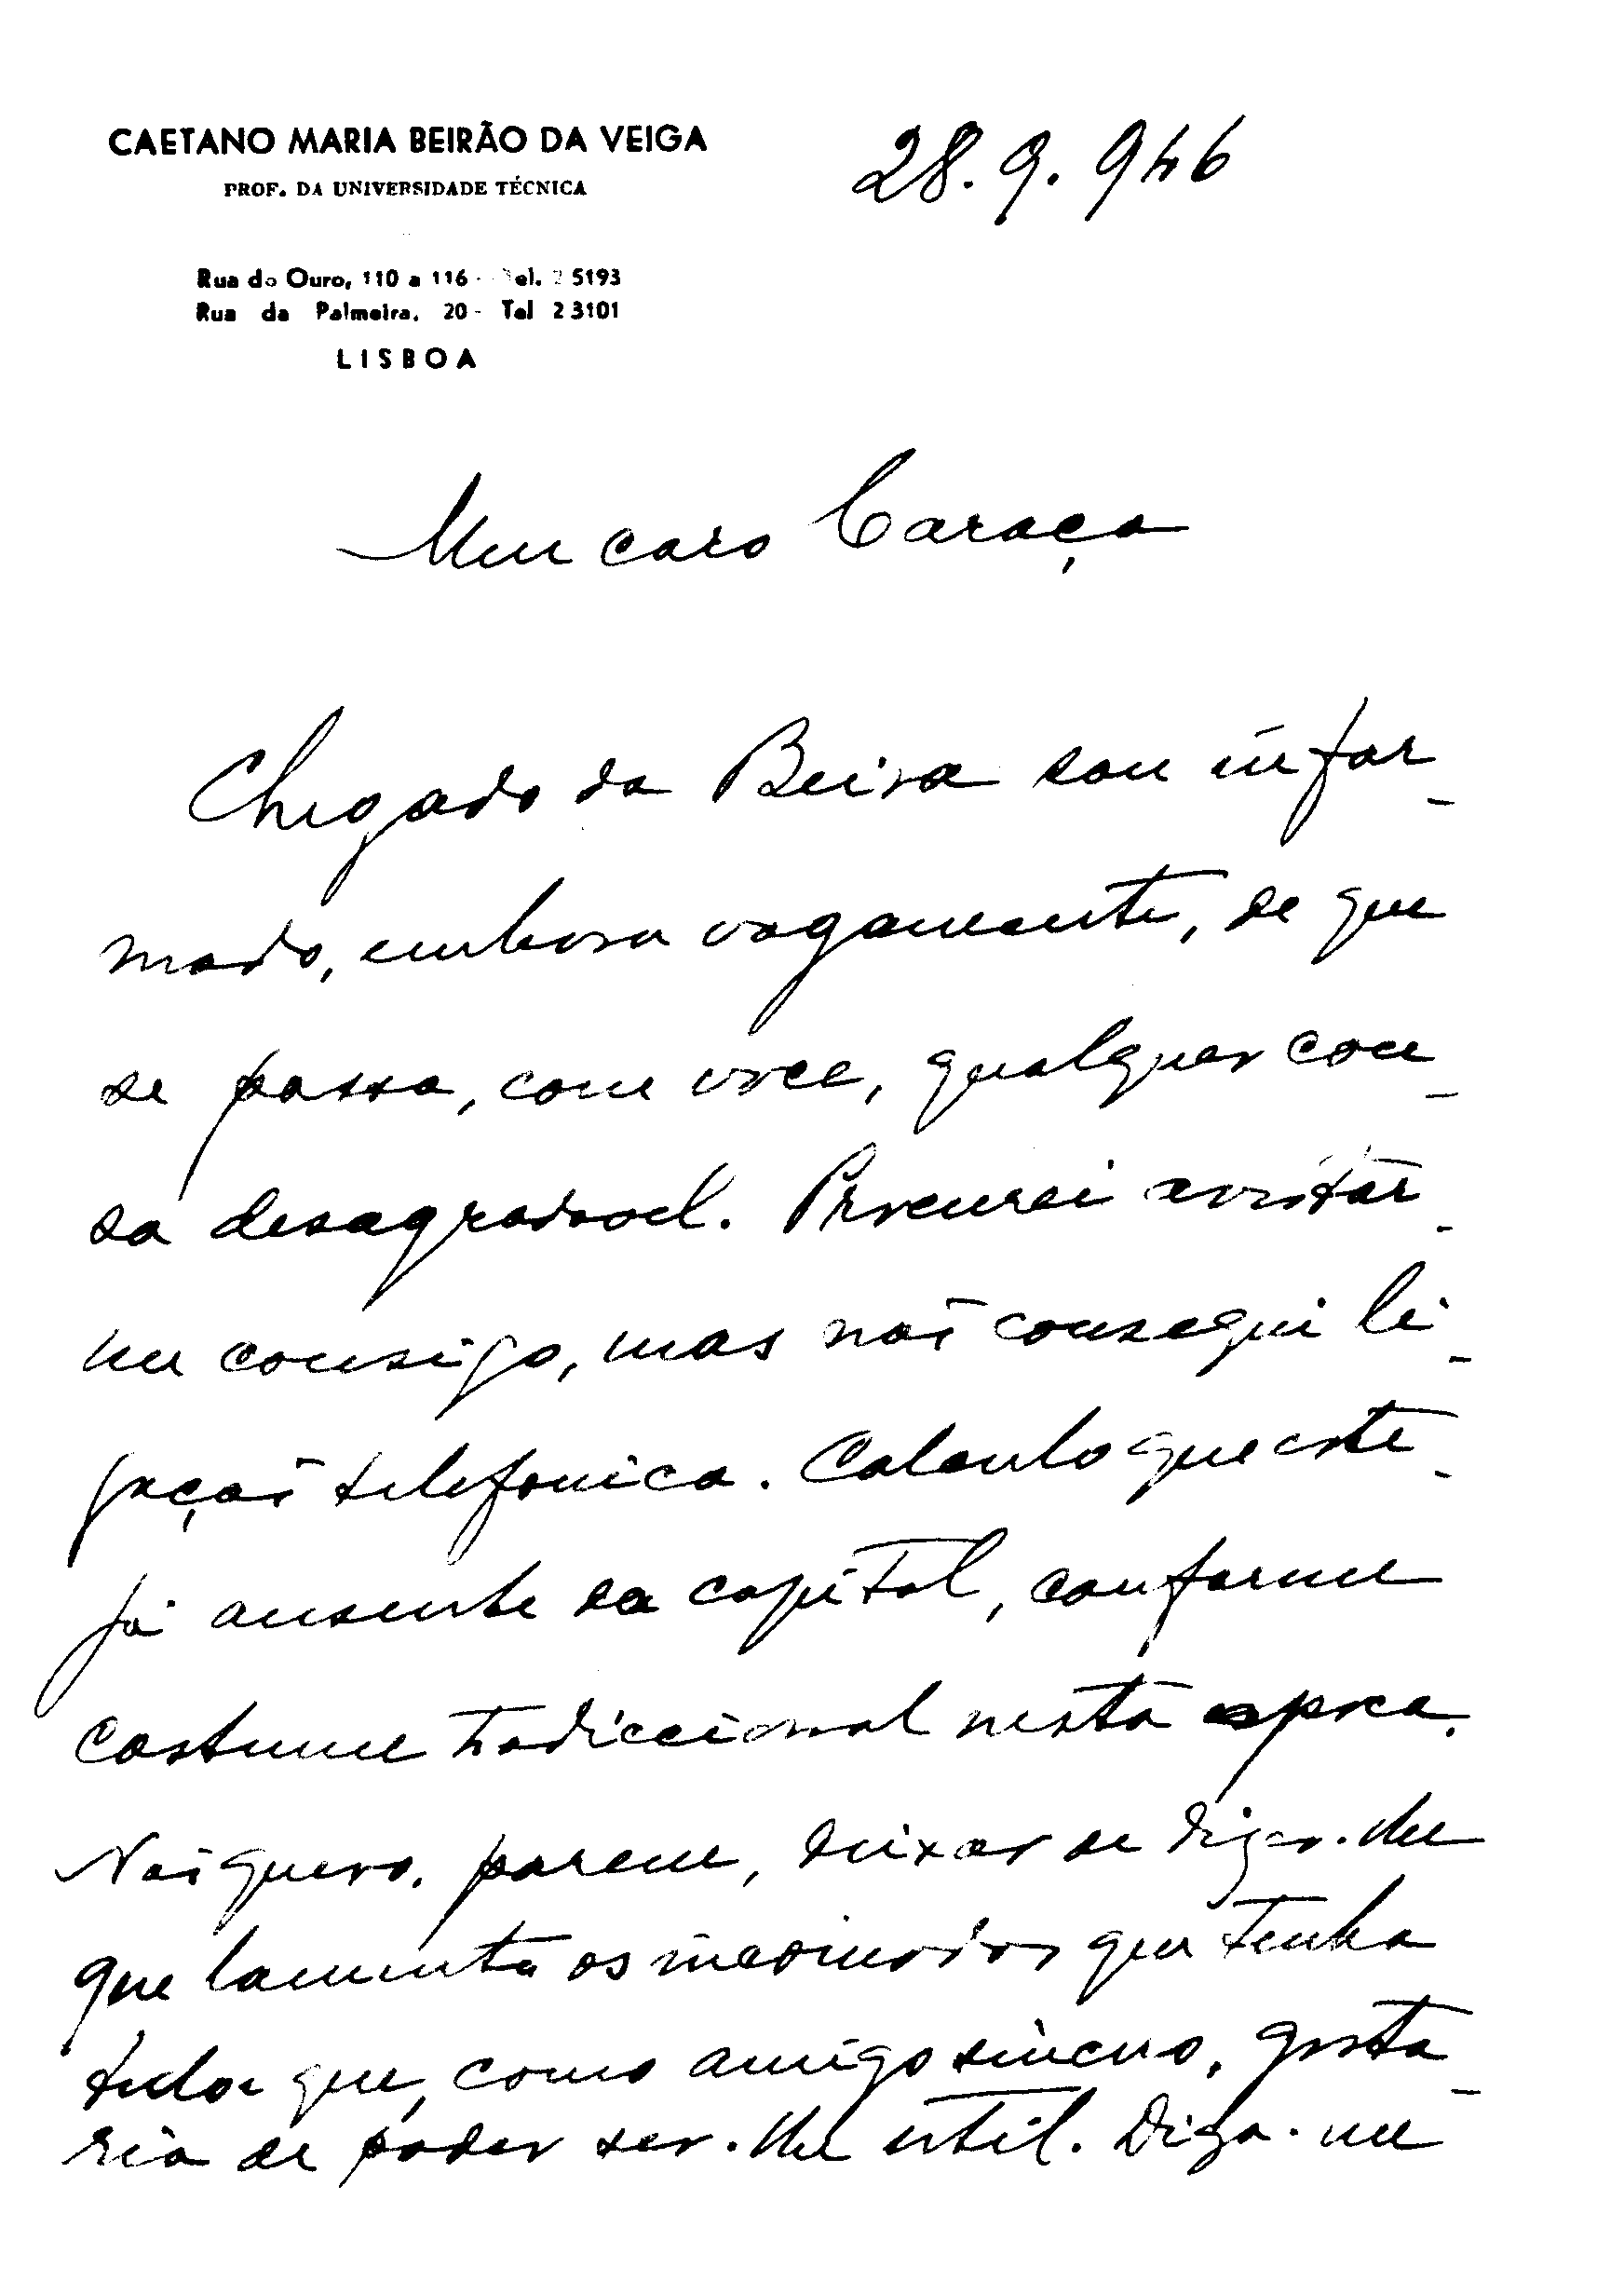 CAETANO MARIA BEIRÃO DA VEIGA
PROF. DA UNIVERSIDADE TÉCNICA
28.9.946
Rua do Ouro, 110 a 116 - Tel. 2 5193
Rua da Palmeira, 20 - Tel 2 3101
LISBOA
Meu caro Caraça
Chegado da Beira sou infor-
mado, embora vagamente, de que
se passa, com voce, qualquer cou-
sa desagradavel. Procurei avistar-
me consigo, mas não consegui li-
gação telefonica. Calculo que este-
já ausente da capital, conforme
costume tradiccional nesta epoca.
Não quero, porem, deixar de dizer-lhe
que lamento os incomodos que tenha
tido e que, como amigo sincero, gosta-
ria de poder ser-lhe util. Diga-me